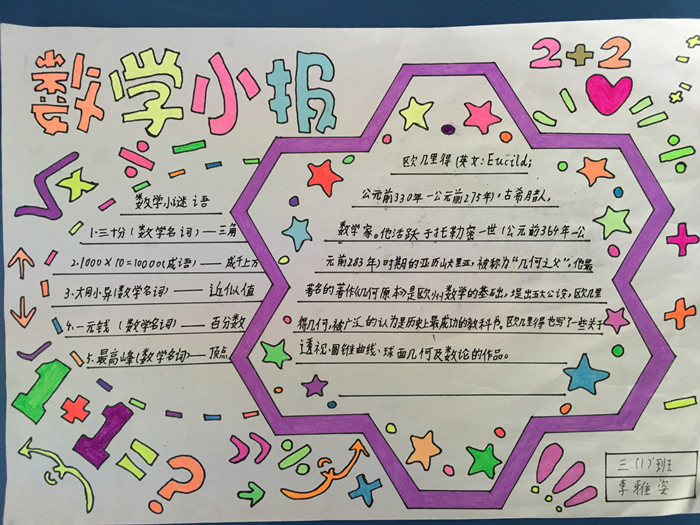 数学小报
2+2
数学小谜语
1.三十分(数学名词)——三角
2.1000×10=10000(成语)——成千上万
3.大同小异(数学名词)——近似值
4.一元钱(数学名词)——百分数
5.最高峰(数学名词)——顶点
欧几里得(英文:Eucild;
公元前330年—公元前275年),古希腊人,
数学家。他活跃于托勒密一世(公元前364年—公
元前283年)时期的亚历山大里亚,被称为“几何之父”,他最
著名的著作《几何原本》是欧州数学的基础,提出五大公设,欧几里
得几何,被广泛的认为是历史上最成功的教科书。欧几里得也写了一些关于
透视、圆锥曲线、球面几何及数论的作品。
1 1
=?
三(1)班
李雅姿